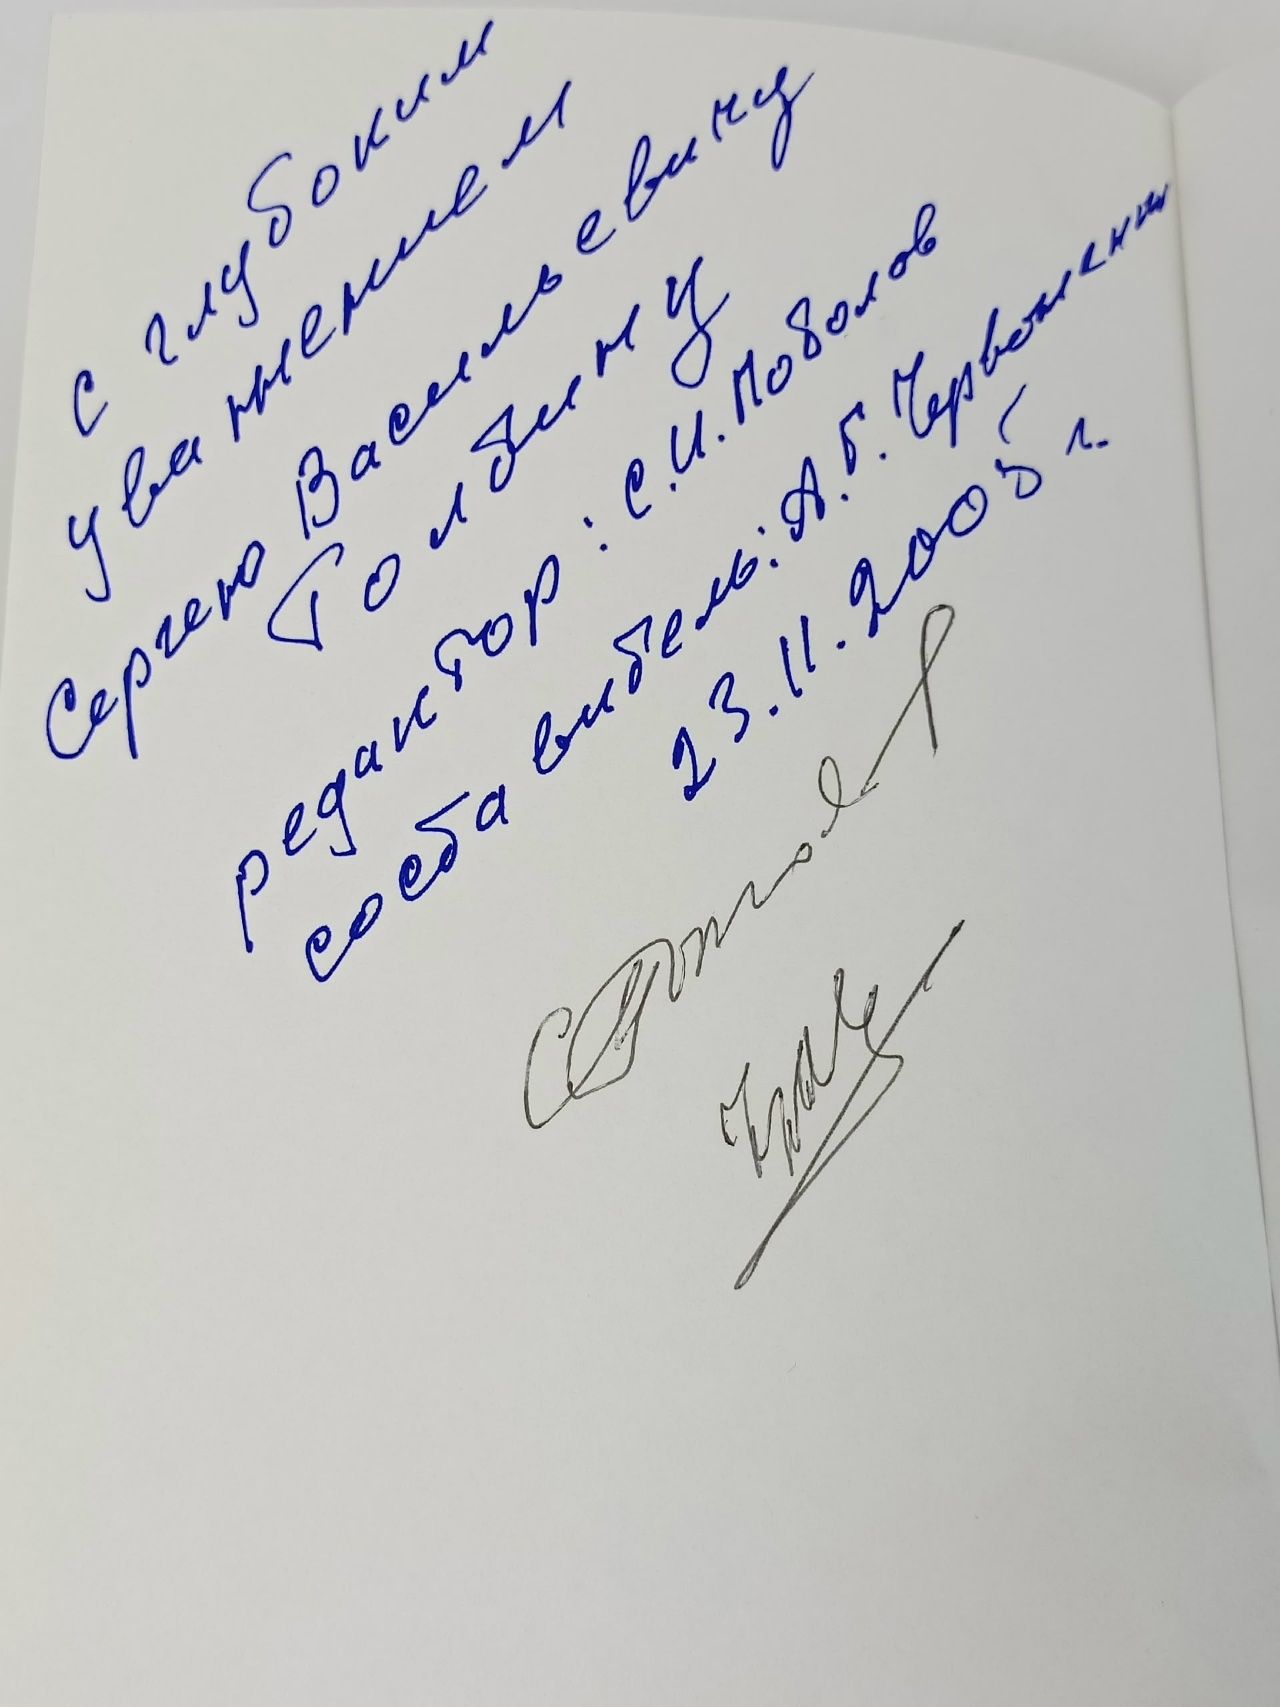 с глубоким
уважением
Сергею Васильевичу
Толбину
редактор: С.И. Поболов
составитель: А.Г.
23.11.2005 г.